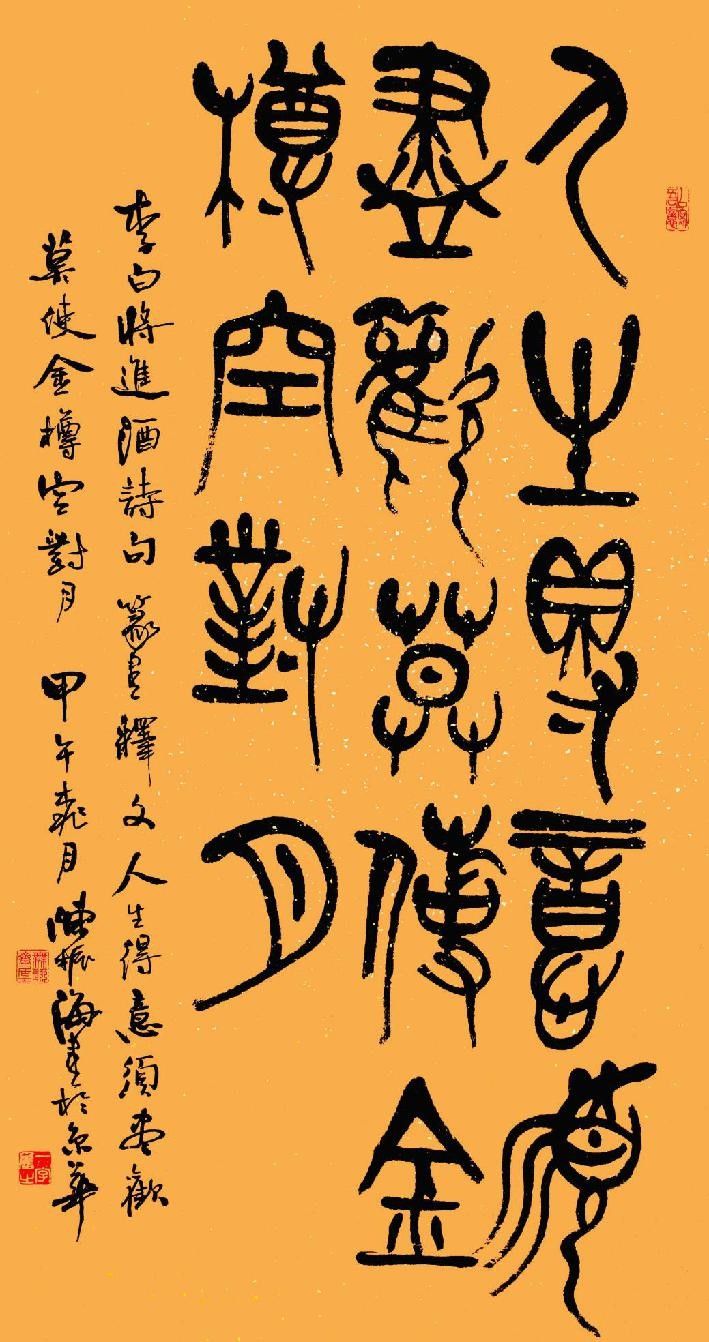 人生得意須
盡歡莫使金
樽空對月
李白將進酒詩句 篆書釋文 人生得意須盡歡
莫使金樽空對月 甲午桃月 陳振海書於京華